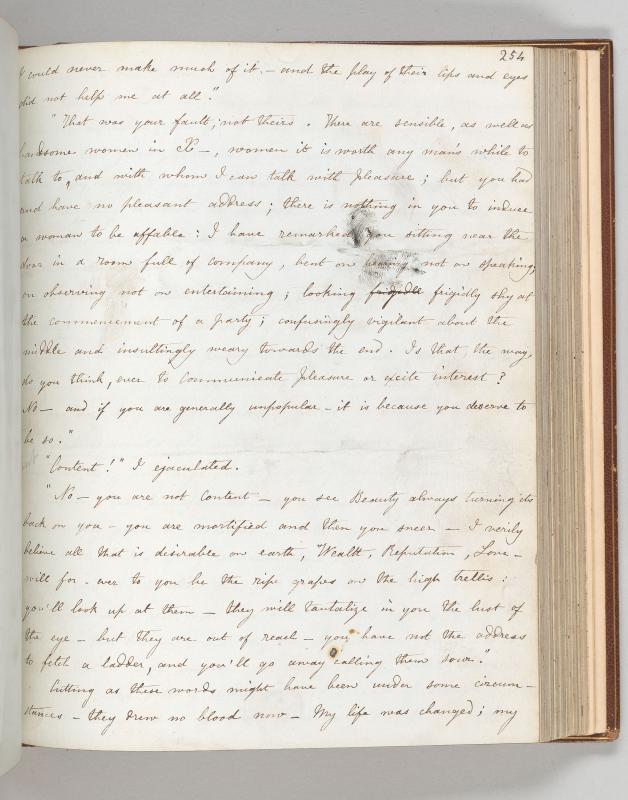 254
I could never make much of it – and the play of their lips and eyes
did not help me at all."
"That was your fault, not theirs. There are sensible, as well as
handsome women in X–, women it is worth any man's while to
talk to, and with whom I can talk with pleasure; but you had
and have no pleasant address; there is nothing in you to induce
a woman to be affable: I have remarked you sitting near the
door in a room full of company, bent on hearing, not on speaking;
on observing not on entertaining; looking frigidly shy at
the commencement of a party; confusingly vigilant about the
middle and insultingly weary towards the end. Is that the way,
do you think, ever to communicate pleasure or excite interest?
No – and if you are generally unpopular – it is because you deserve to
be so."
"Content!" I ejaculated.
"No – you are not content – you see Beauty always turning its
back on you – you are mortified and then you sneer – I verily
believe all that is desirable on earth, Wealth, Reputation, Love –
will for-ever to you be the ripe grapes on the high trellis:
you'll look up at them – they will tantalize in you the lust of
the eye – but they are out of reach – you have not the address
to fetch a ladder, and you'll go away calling them sour."
Cutting as these words might have been under some circum-
stances – they drew no blood now – My life was changed; my